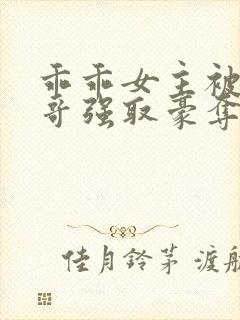 乖乖女主被
哥强取豪夺
佳月铃茅 渡舟